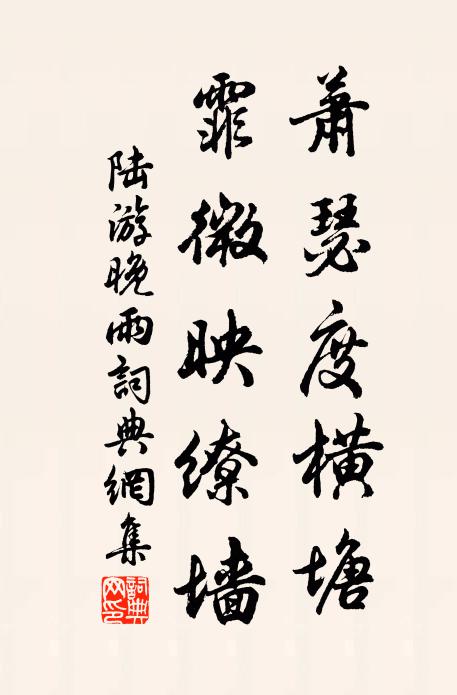 萧瑟度横塘
霏微映缭墙
陆游晚雨詞典網集
詞典网印